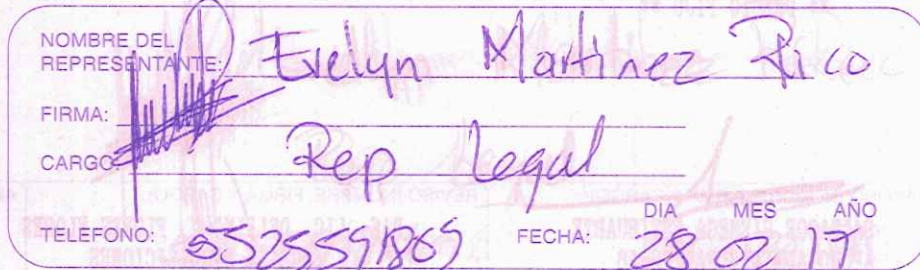 NOMBRE DEL
REPRESENTANTE: Evelyn Martinez Rico
FIRMA:
CARGO: Rep Legal
DIA MES AÑO
TELEFONO: 5525591869 FECHA: 28 02 17